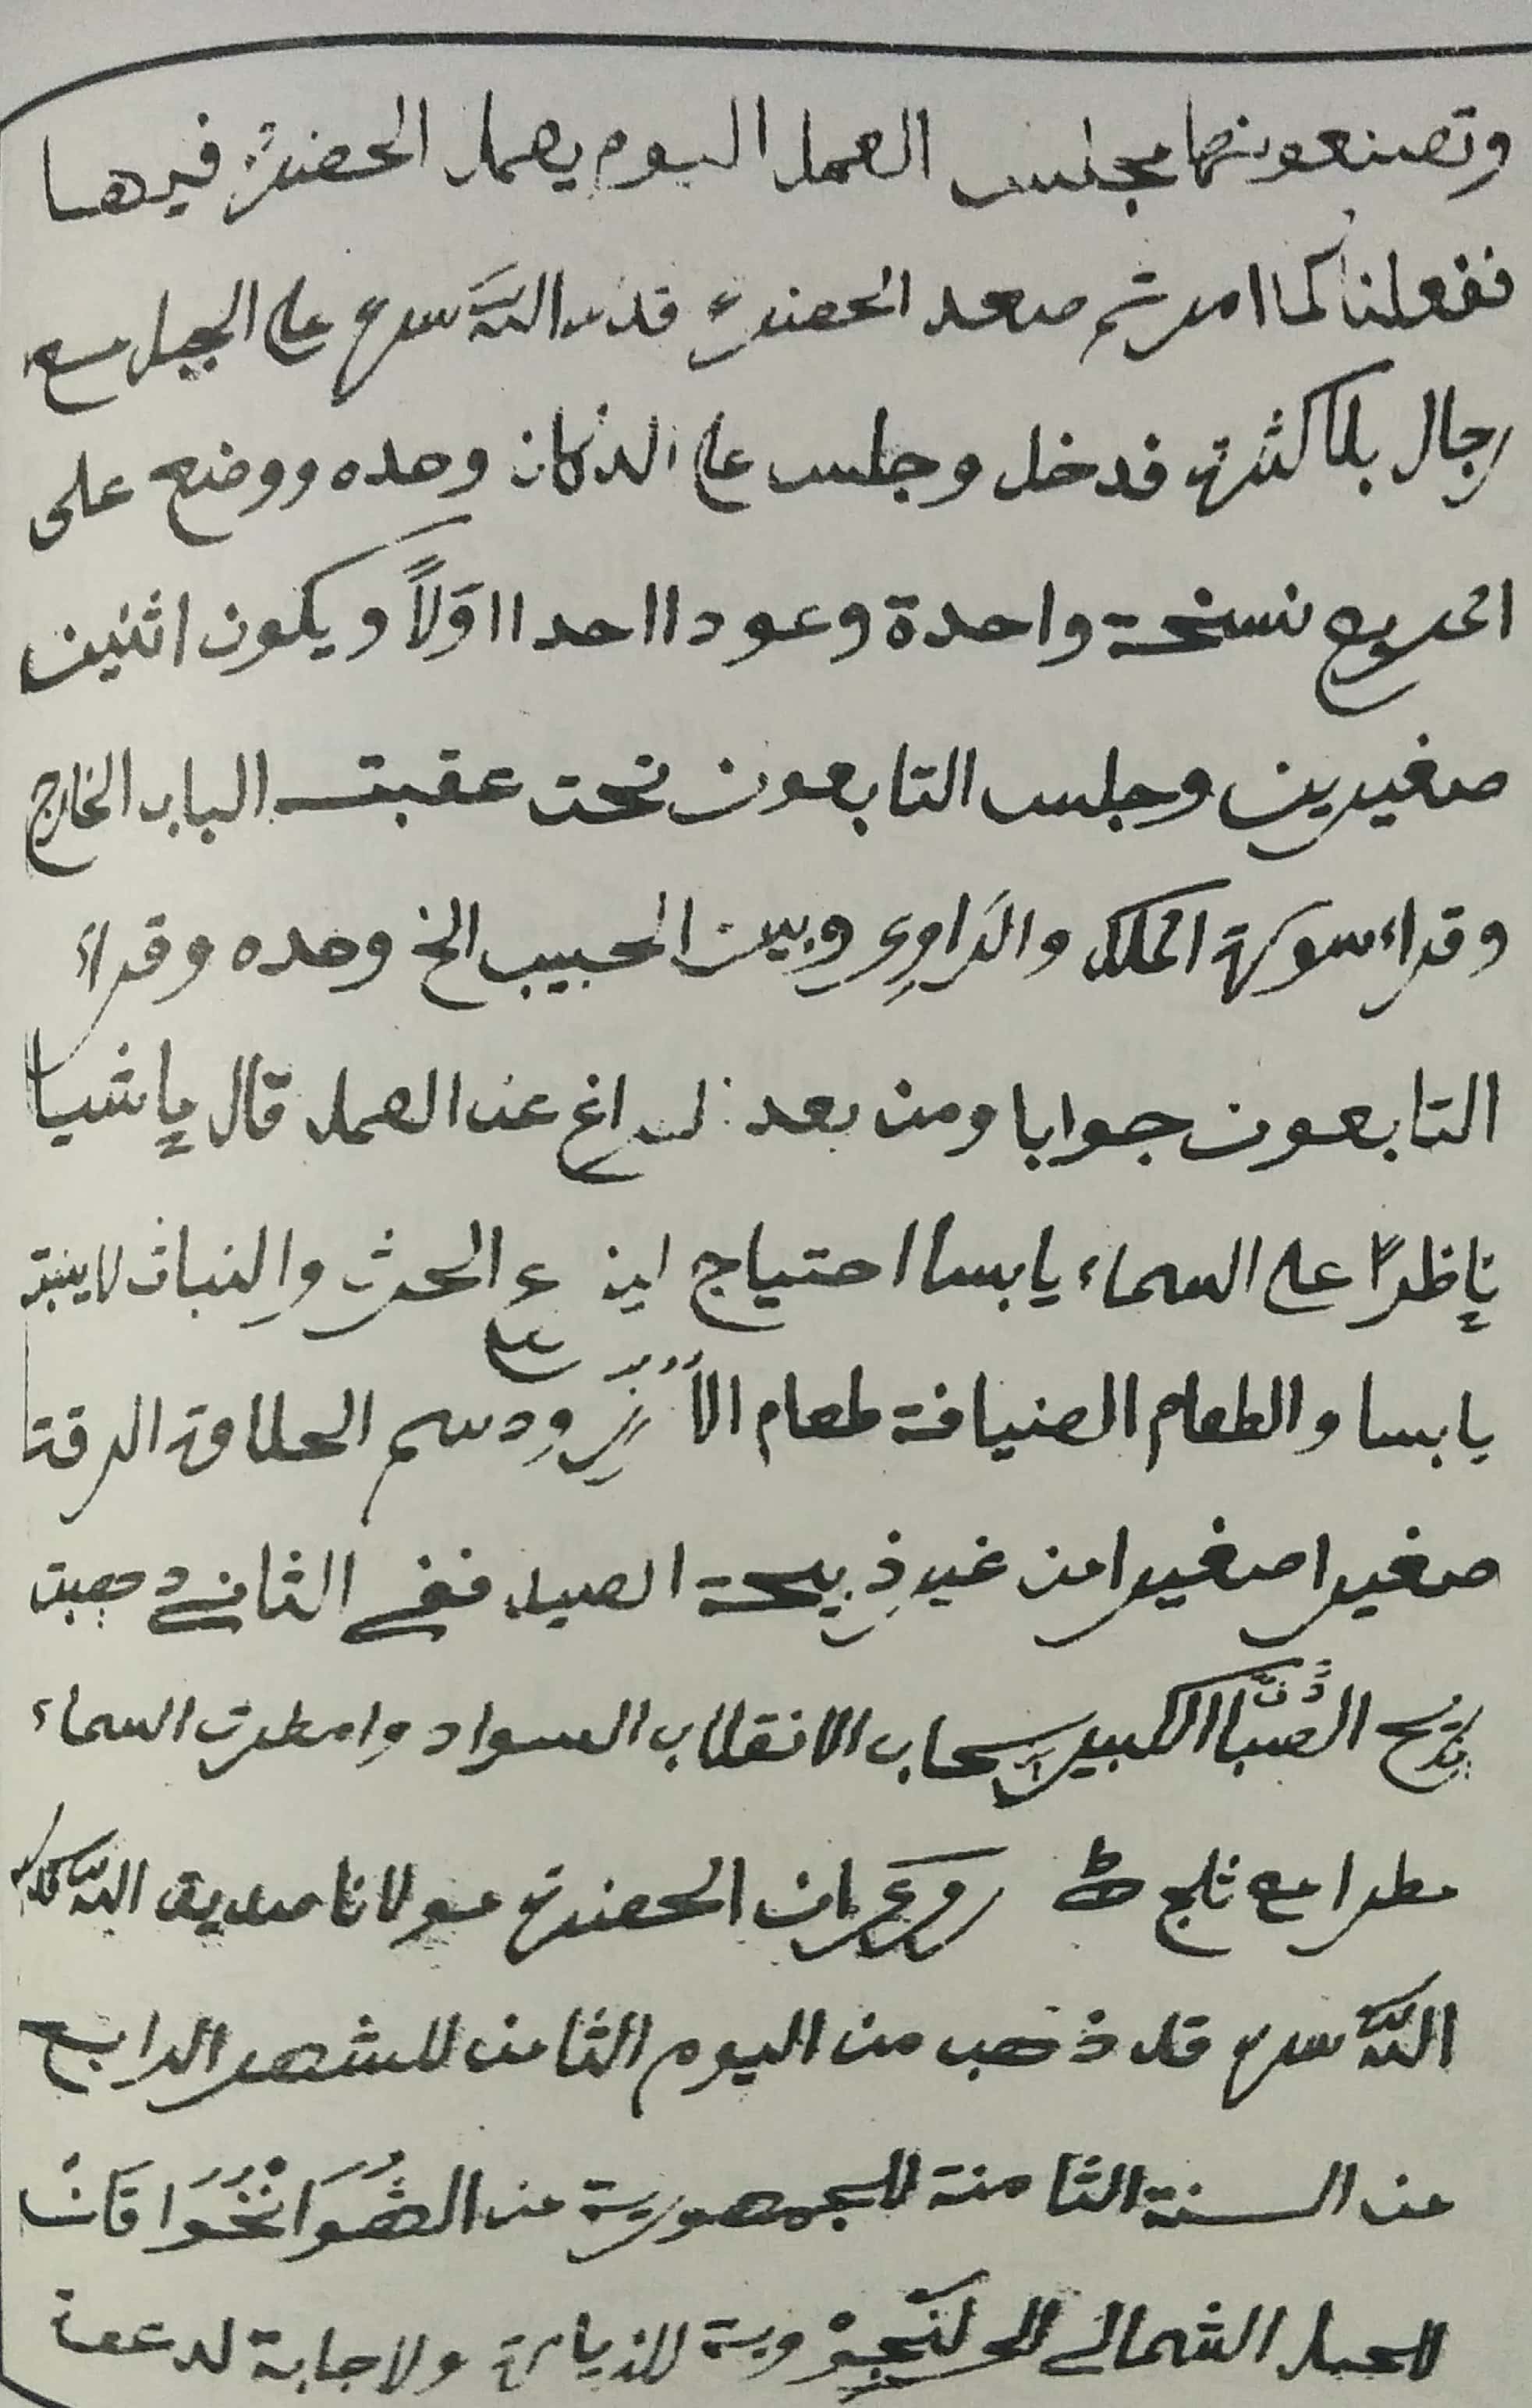 وتصنعونها مجلس العمل اليوم يعمل الحضرة فيها
ففعلنا كما امر ثم صعد الحضرة قدس الله سره على الجبل مع
رجال بلا كثرة فدخل وجلس على الدكان وحده ووضع على
نسخة واحدة وعودا احدا اوّلاً ويكون اثنين
صغيرين وجلس التابعون تحت عقبة الباب الخارج
وقراء سورة الملك والرّاوِي وبين الحبيب الخ وحده وقراء
التابعون جوابا ومن بعد عن العمل قال يا شيا
ناظراً على السماء يابسا احتياج الحرث والنبات لاينبت
يابسا والطعام الضيافة طعام ودسم الحلاوة الرقة
صغيرا صغيرا من غير ذبيحة الصيد ففي الثاني
ريح الكبير سحاب الانقلاب السواد وامطرت السماء
مطرا مع ثلج روي ان الحضرة مولانا صديق الله
الله سره قد ذهب من اليوم الثامن للشهر الرابع
من السنة الثامنة للجمهورية من
للجبل الشمالي الى للزيارة ولاجابة لدعوة